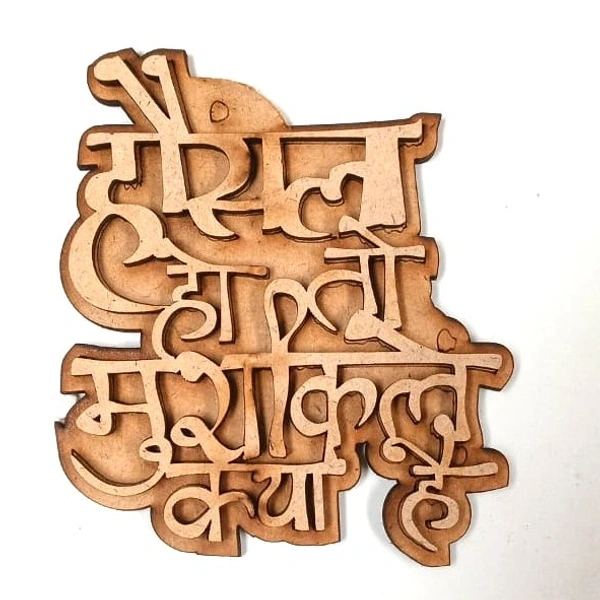 हौसला
हो तो
मुश्किल
क्या है